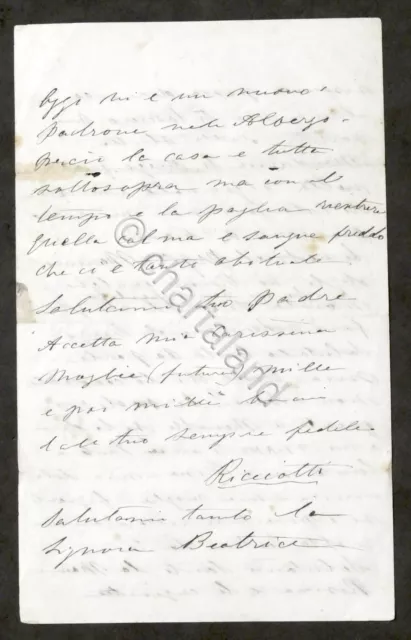 Oggi vi è un nuovo
Padrone nell Albergo.
Perciò la casa è tutta
sottosopra ma con il
tempo e la paglia
quella calma e sangue freddo
che ci è tanto
Salutami tuo Padre
Accetta mia carissima
Moglie (futura) mille
e poi mille baci
dal tuo sempre fedele
Ricciotti
Salutami tanto la
Signora Beatrice
© chartaland